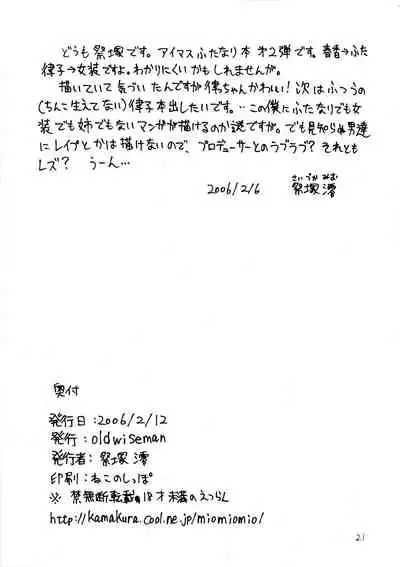 どうも祭塚です。アイマスふたなり本 オ2弾です。春香→ふた
律子→女装ですよ。わかりにくいかもしれませんが。
描いていて気づいたんですが律っちゃんかわいい!次はふつうの
(ちんこ生えてない)律子本出したいです。…この僕にふたなりでも女
装でも姉でもないマンガが描けるのか謎ですが。でも見知らぬ男達
にレイプとかは描けないので、プロデューサーとのラブラブ?それとも
レズ? うーん…
さいづか みお
2006/2/6 祭塚澪
奥付
発行日:2006/2/12
発行:oldwiseman
発行者:祭塚 澪
印刷:ねこのしっぽ
※ 禁無断転載 18才未満のえつらん
http://kamakura.cool.ne.jp/miomiomio/
21